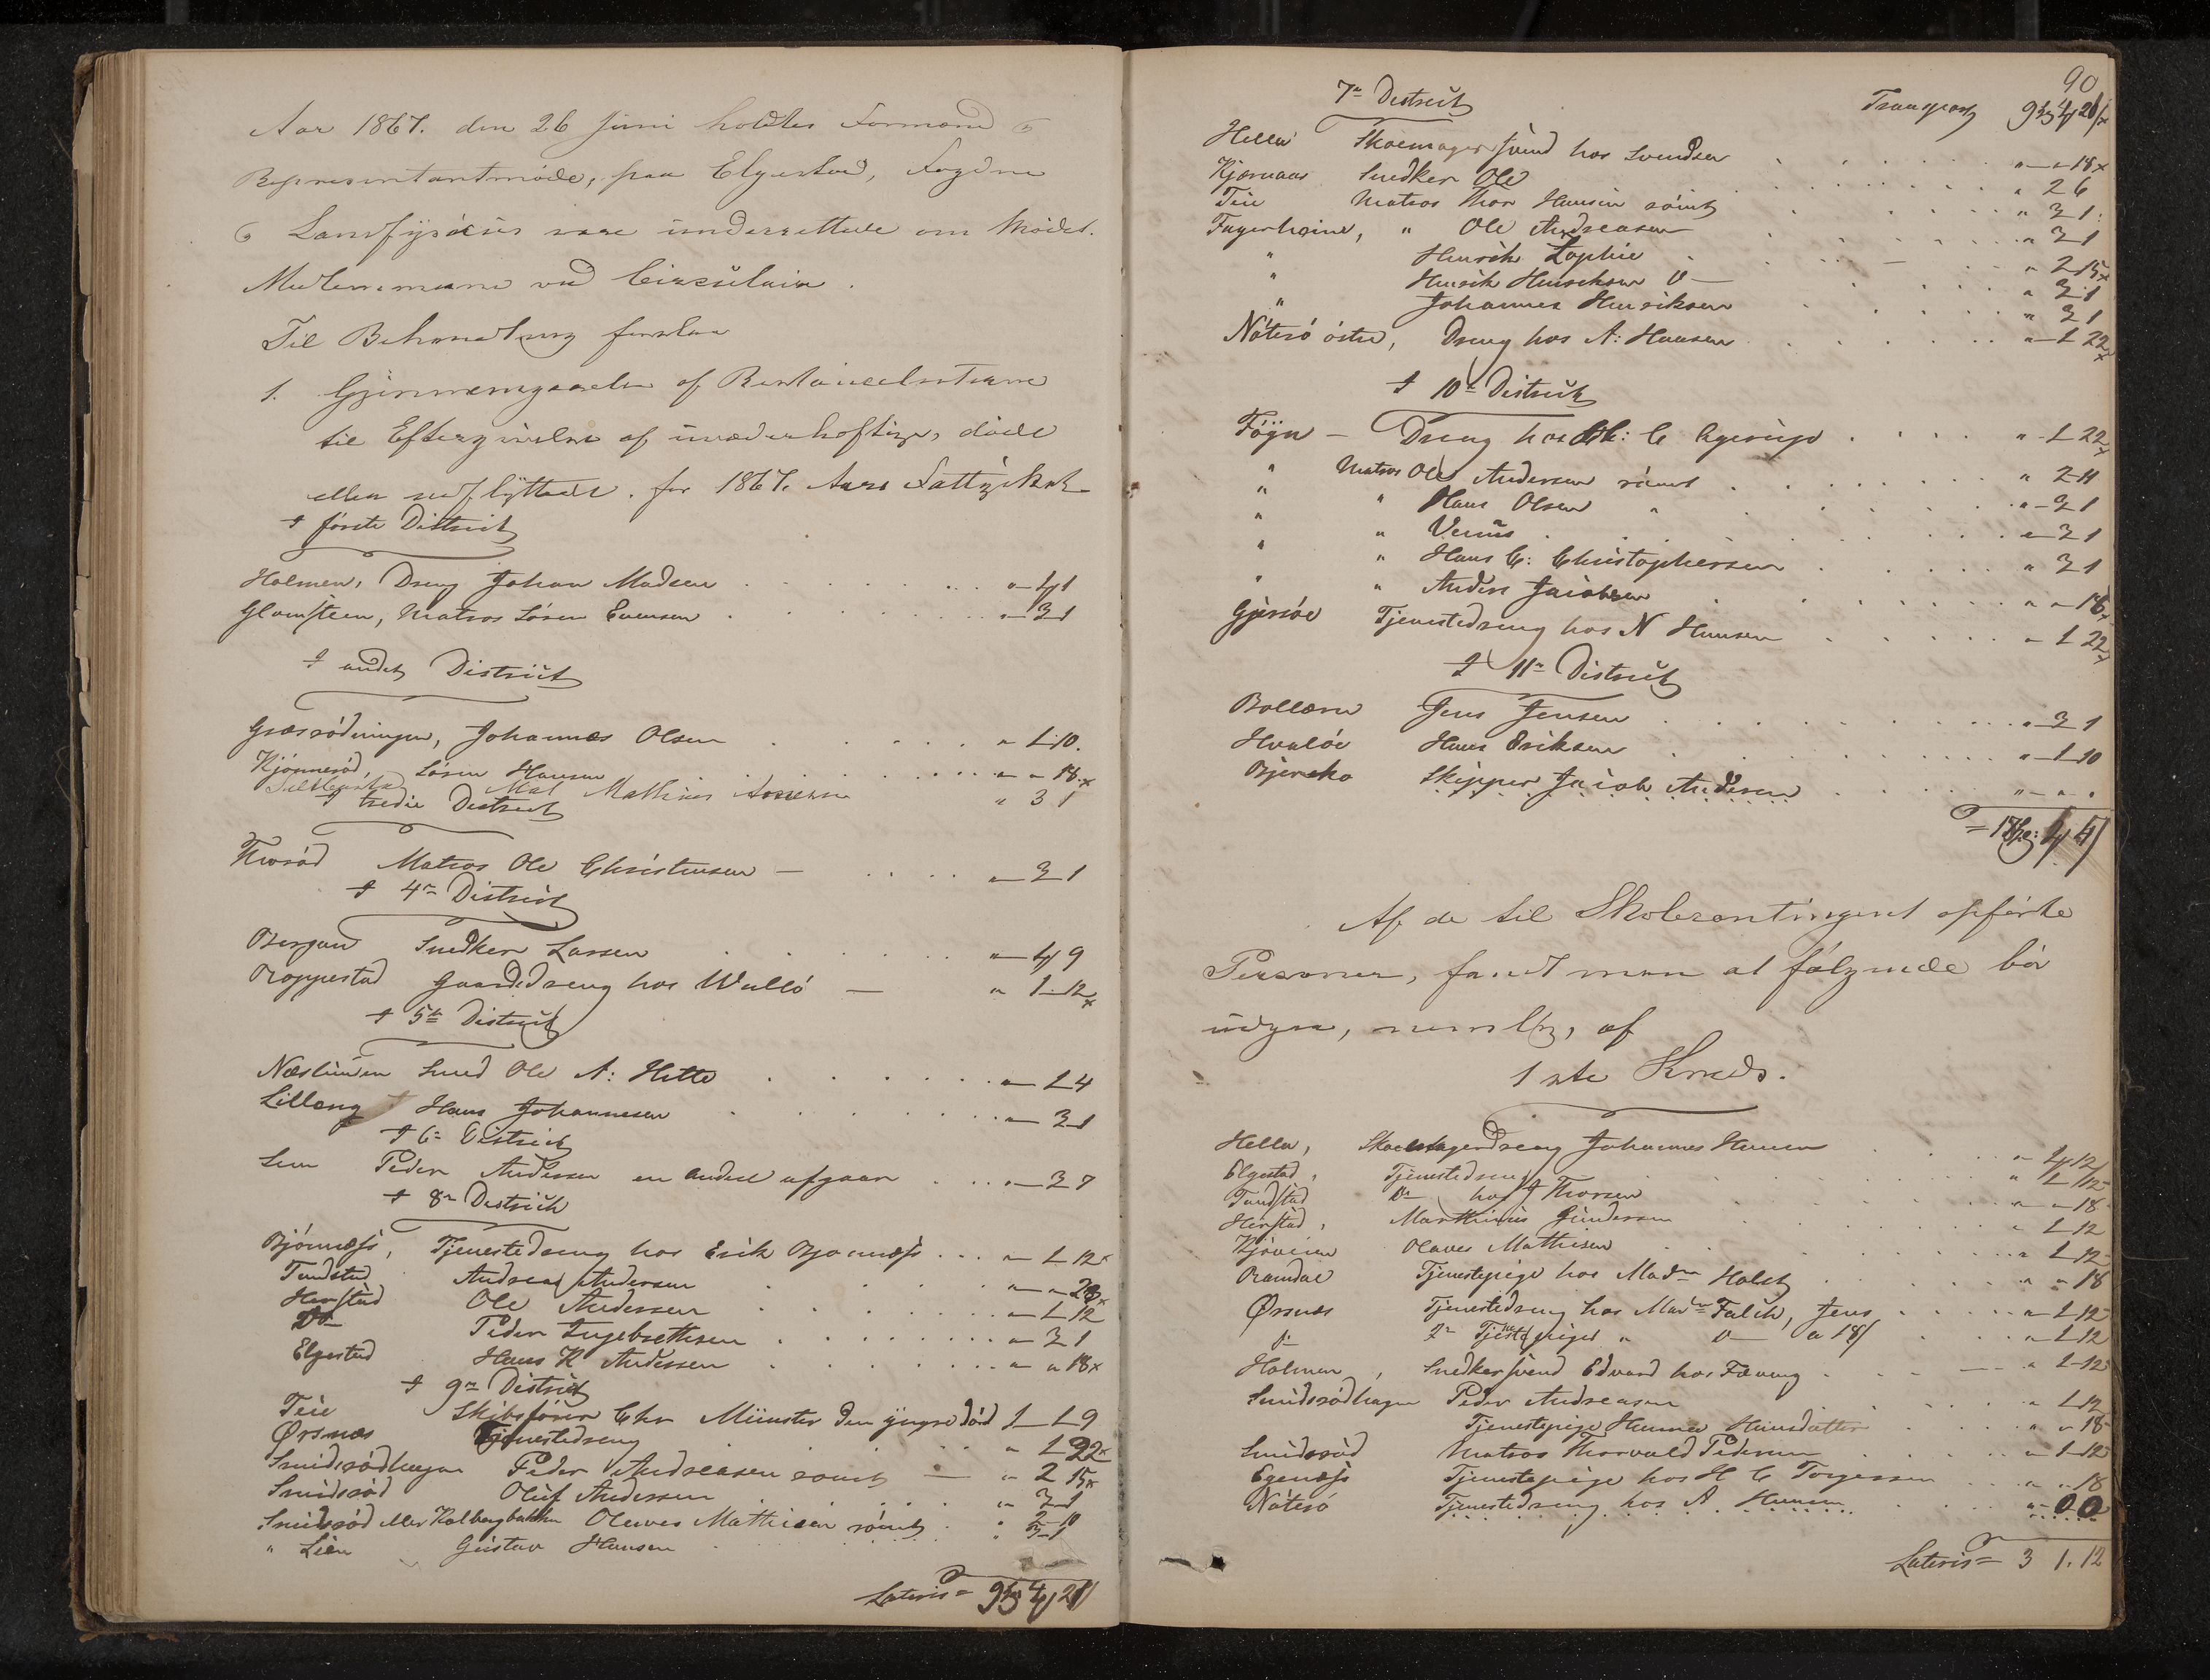 Aar 1867. den 26 Juni holdtes Formand &
Repræsentantmøde, paa Elgestad, Fogden
& Landfysicus vare underrettede om Mødet.
Medlemmerne ved Circulaire.
Til Behandling forelaa
1. Gjennemgaaelse af Restancelisterne
til Eftergivelse af uvederhæftige, døde
eller udflyttede. for 1867. Aars Fattigskat
I første District
Holmen, Dreng Johan Madsen " 4 1
Glomsteen, Matros Søren Evensen " 3 1
I andet District
Græsrødningen, Johannes Olsen " 1 10.
Kjønnerød, Søren Hansen " " 18 x
Mat Mathias " 3 1
I tredie District
Matros Ole Christensen — " 3 1
I 4de District
Bergan Snedker Larsen " 4 9
Roppestad Gaardsdreng hos Wullø — " 1 12 x
I 5te District
Smed Ole A: Hette " 1 4
Lilleeng Hans Johannesen " 3 1
I 6te District
Lem Peder Andersen en andeel afgaar " 3 7
I 8de District
Bjønnæss, Tjenestedreng hos Erik Bjønnæss " 1 12 x
Tandstad Andreas Andersen " " 28 x
Herstad Ole Andersen " 1 12
Do Peder Ingebretsen " 3 1
Elgestad Hans K Andersen " " 18 x
I 9de District
Teie Skibsfører Chr Münster den yngre død 1 1 9
Ørsnæs Tjenestedreng " 1 22 x
Smidsrødhagen Peder Andreasen rømt — " 2 15 x
Smidsrød Oluf Andersen " 3 1
Smidsrød eller Kolbergbakken Olaves Mathisen rømt " 2 10
" Lien Gustav Hansen " 3 1
Lateris = 9 4 21
90
7de District
Transport 9 4 21
Hella Skoemagersvend hos Svendsen " " 18 x
Kjærnaas Snedker Ole " 2 6
Teie Matros Thor Hansen rømt " 3 1
Fagerheim, " Ole Andreasen " 3 1
" Henrik Sophie " 2 15 x
" Henrik Henriksen D — " 3 1
" Johannes Henriksen " 3 1
Nøterø østre, Dreng hos A: Hansen " 1 22 x
I 10de District
Føyn — Dreng hos C Agerup " 1 22 x
" Matros Ole Andersen rømt " 2 11
" " Hans Olsen " " 3 1
" " Venus " 3 1
" " Hans C: Christophersen " 3 1
" " Anders Jacobsen " " 18 x
Gjersøe Tjenestedreng hos N Hansen " 1 22 x
I 11te District
Bollærne Jens Jensen " 3 1
Hvaløe Hans Eriksen " 1 10
Bjerskø Skipper Jacob Andersen " " "
= 17 4 4
Af de til Skolecontingent opførte
Personer, fandt man at følgende bør
udgaa, nemlig, af
1ste Kreds.
Hella, Skoemagerdreng Johannes Hansen " 4 12
Elgestad, Tjenestedreng " 1 12
Tandstad Do hos J Thorsen " " 18
Herstad, Marthinius Gundersen " 1 12
Kjøveien Olaves Mathisen " 1 12
Ramdal Tjenestepige hos Madm Holst " " 18
Ørsnæs Tjenestedreng hos Madm Falck, Jens " 1 12
Do 2de Tjenestepiger " D — a 18 " 1 12
Holmen, Snedkersvend Edvard hos Færeng " 1 12
Smidsrødhagen Peder Andreasen " 1 12
Tjenestepige Hanna Hansdatter " " 18
Smidsrød Matros Thorvald Pedersen " 1 12
Egenæss Tjenestepige hos H C Torgersen " " 18
Nøterø Tjenestedreng hos A. Hansen " 0 0
Lateris = 3 1. 12